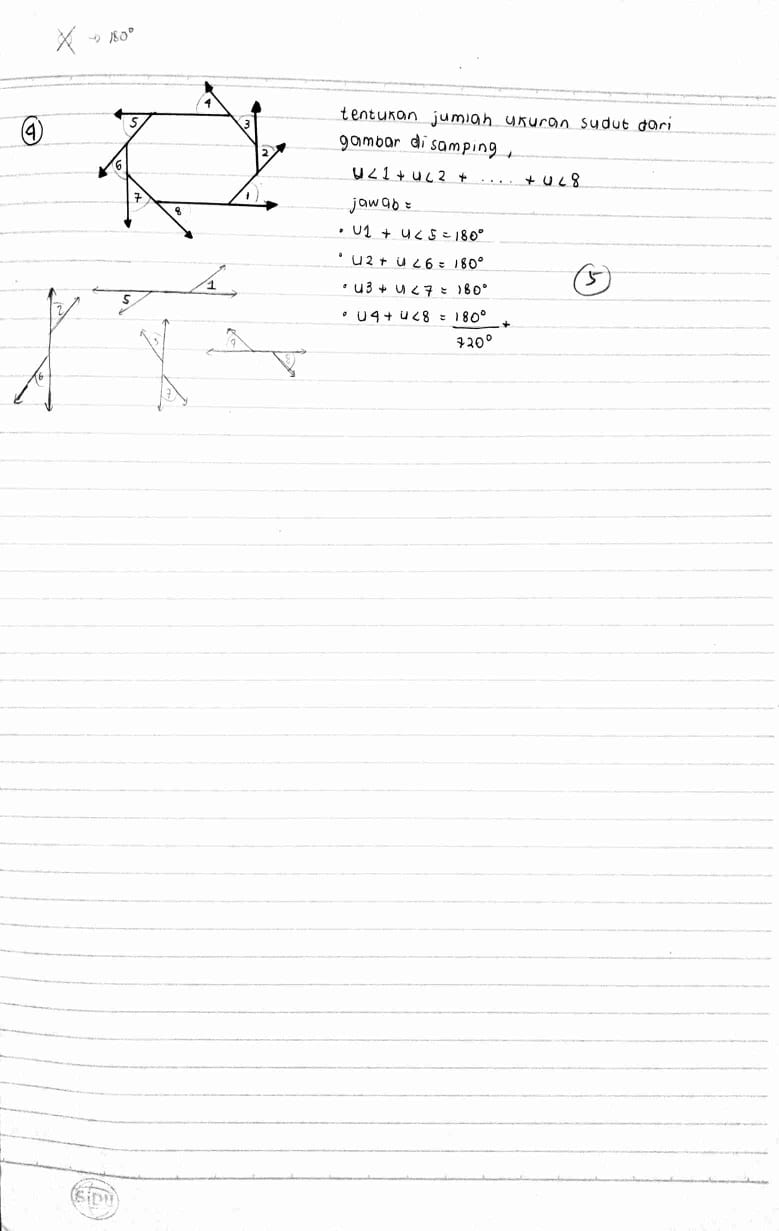 X → 180°
4
4
5
3
2
6
7
8
1
tentukan jumlah ukuran sudut dari
gambar disamping,
u<1 + u<2 + .... + u<8
jawab =
• u1 + u<5 = 180°
• u2 + u<6 = 180°
• u3 + u<7 = 180°
• u4 + u<8 = 180° +
720°
5
5
1
2
6
3
7
4
8
SiDU